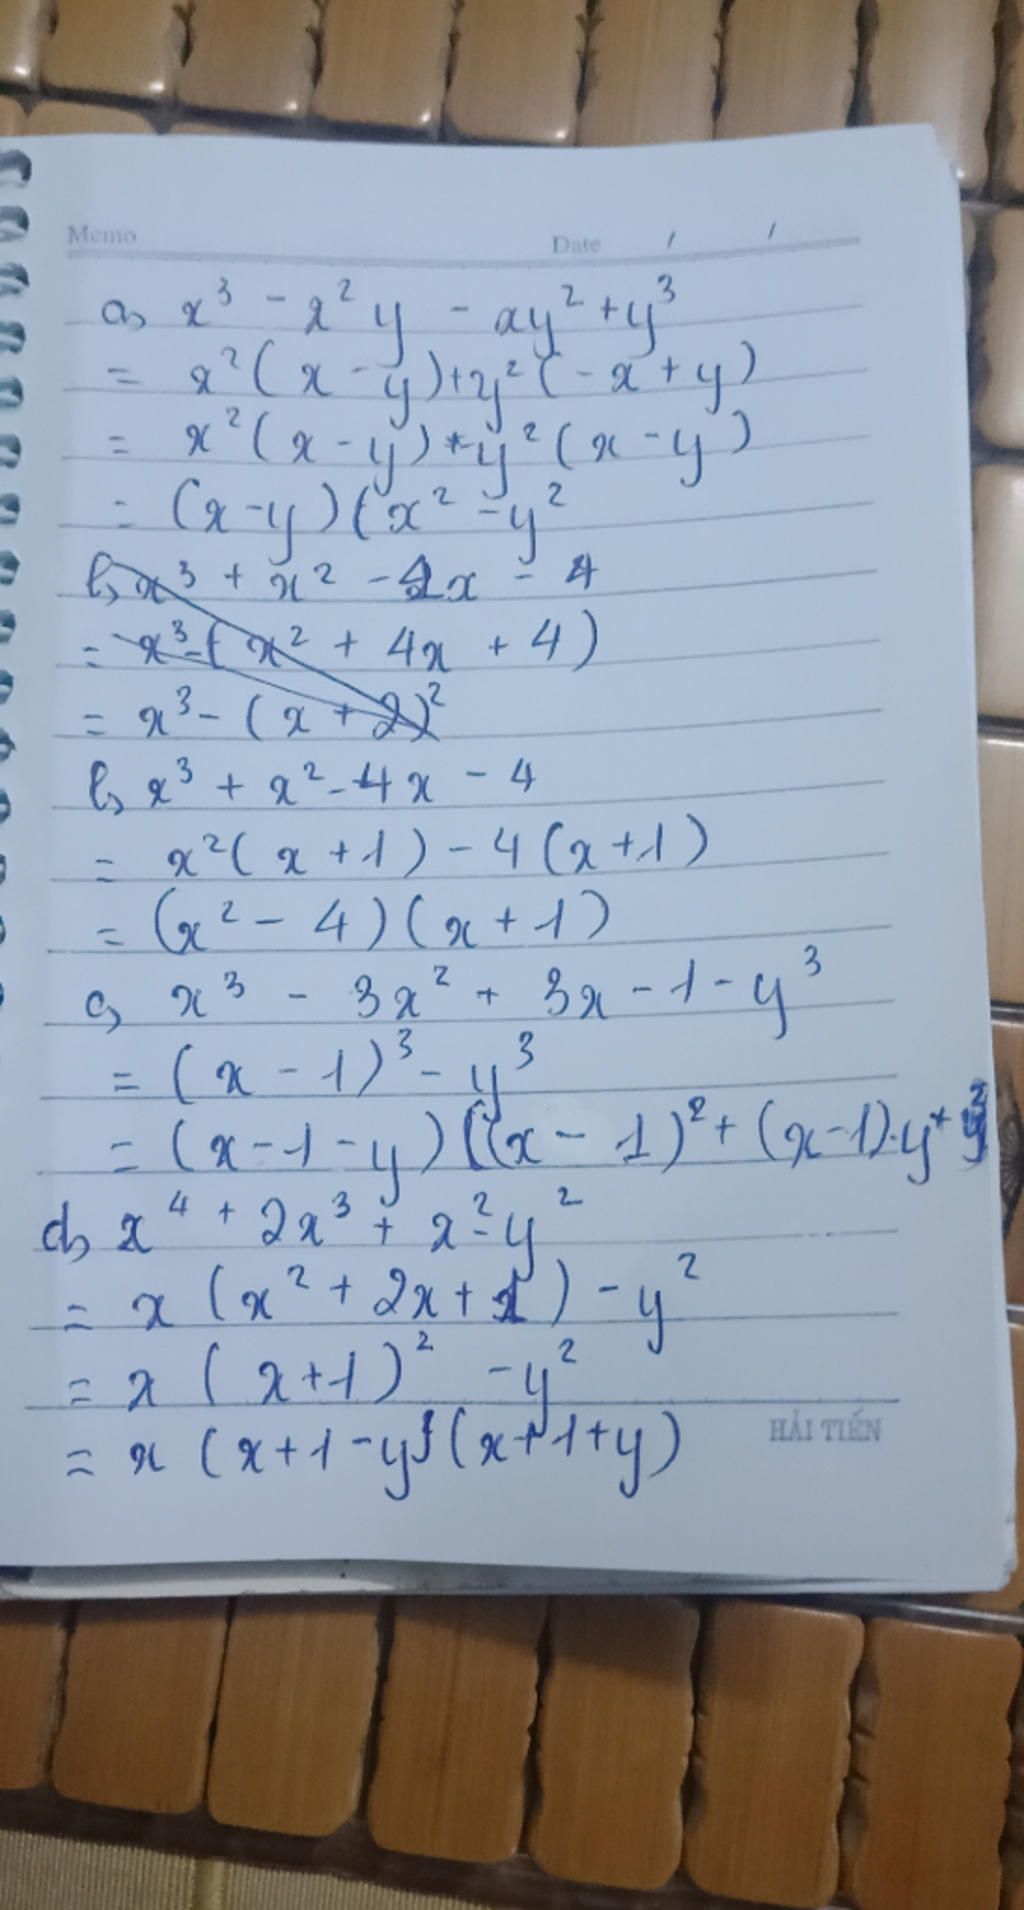 Memo Date / /
a, x³ - x²y - xy² + y³
= x²(x - y) + y²(-x + y)
= x²(x - y) - y²(x - y)
= (x - y)(x² - y²
b, x³ + x² - 4x - 4
= x³ - (x² + 4x + 4)
= x³ - (x + 2)²
b, x³ + x² - 4x - 4
= x²(x + 1) - 4(x + 1)
= (x² - 4)(x + 1)
c, x³ - 3x² + 3x - 1 - y³
= (x - 1)³ - y³
= (x - 1 - y)((x - 1)² + (x - 1).y + y²
d, x⁴ + 2x³ + x² - y²
= x (x² + 2x + 1) - y²
= x (x + 1)² - y²
= x (x + 1 - y)(x + 1 + y)
HẢI TIẾN